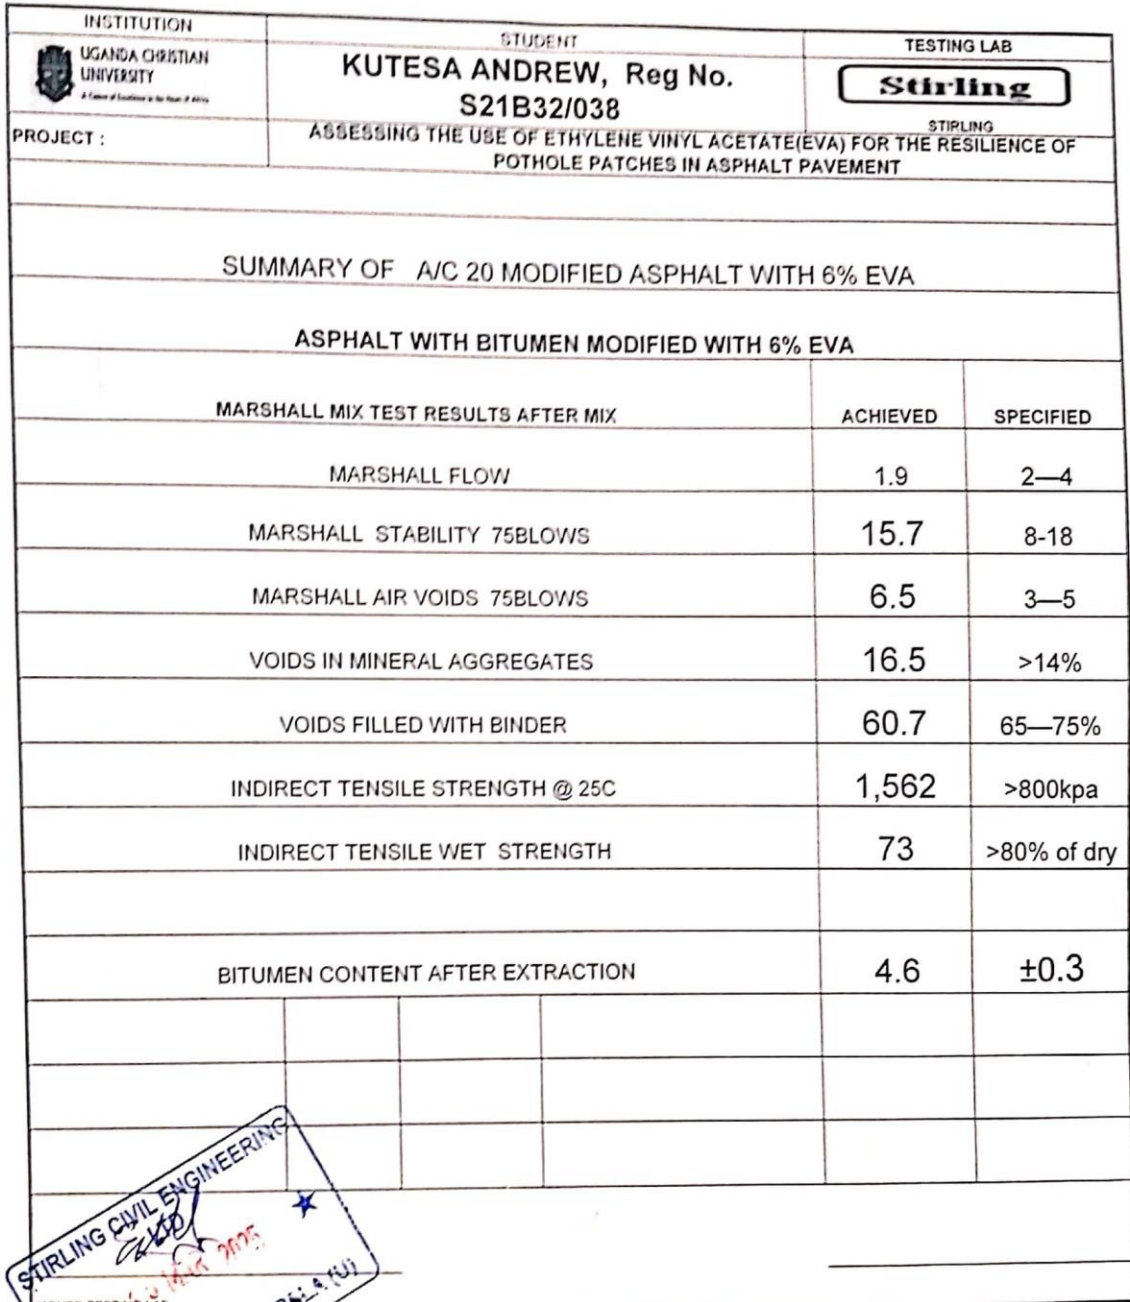 INSTITUTION
UGANDA CHRISTIAN
UNIVERSITY
A Centre of Excellence in the Heart of Africa
STUDENT
KUTESA ANDREW, Reg No.
S21B32/038
TESTING LAB
Stirling
STIRLING
PROJECT :
ASSESSING THE USE OF ETHYLENE VINYL ACETATE(EVA) FOR THE RESILIENCE OF
POTHOLE PATCHES IN ASPHALT PAVEMENT
SUMMARY OF A/C 20 MODIFIED ASPHALT WITH 6% EVA
ASPHALT WITH BITUMEN MODIFIED WITH 6% EVA
MARSHALL MIX TEST RESULTS AFTER MIX ACHIEVED SPECIFIED
MARSHALL FLOW 1.9 2—4
MARSHALL STABILITY 75BLOWS 15.7 8-18
MARSHALL AIR VOIDS 75BLOWS 6.5 3—5
VOIDS IN MINERAL AGGREGATES 16.5 >14%
VOIDS FILLED WITH BINDER 60.7 65—75%
INDIRECT TENSILE STRENGTH @ 25C 1,562 >800kpa
INDIRECT TENSILE WET STRENGTH 73 >80% of dry
BITUMEN CONTENT AFTER EXTRACTION 4.6 ±0.3
STIRLING CIVIL ENGINEERING
LTD
MAR 2025
(U)